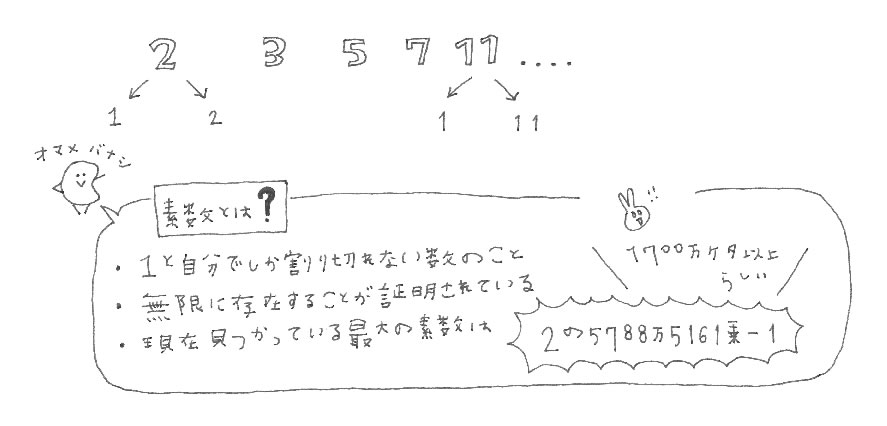 2 3 5 7 11 ....
1 2 1 11
オマメ バナシ
素数とは?
!!
・1と自分でしか割り切れない数のこと
1700万ケタ以上
らしい
・無限に存在することが証明されている
・現在見つかっている最大の素数は
2の5788万5161乗-1